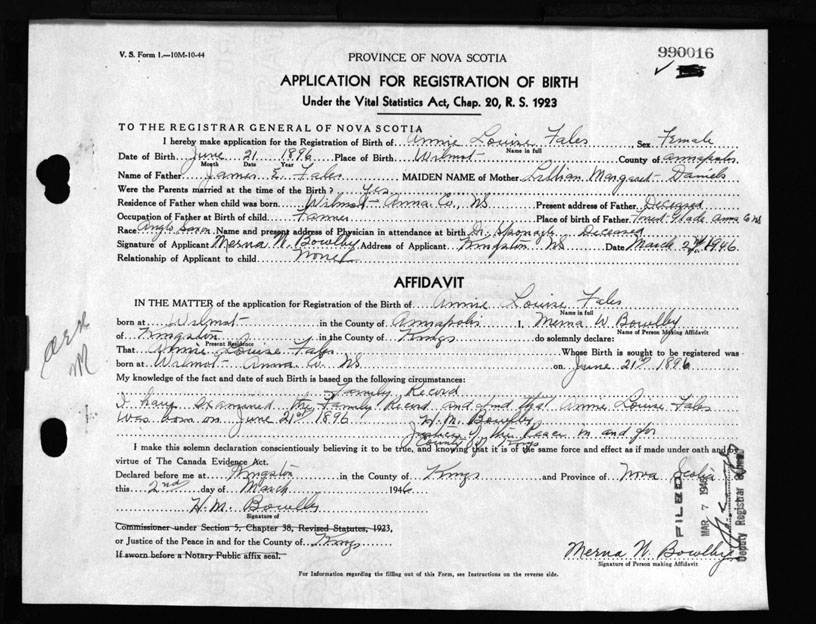 V. S. Form 1.—10M-10-44
PROVINCE OF NOVA SCOTIA
990016
APPLICATION FOR REGISTRATION OF BIRTH
Under the Vital Statistics Act, Chap. 20, R. S. 1923
TO THE REGISTRAR GENERAL OF NOVA SCOTIA
I hereby make application for the Registration of Birth of Annie Louise Fales Sex Female
Name in full
Date of Birth June 21 1896 Place of Birth Wilmot County of Annapolis
Month Date Year
Name of Father James E. Fales MAIDEN NAME of Mother Lillian Margaret Daniels
Were the Parents married at the time of the Birth? Yes
Residence of Father when child was born Wilmot Anna Co., NS Present address of Father Deceased
Occupation of Father at Birth of child Farmer Place of birth of Father Glade Anna Co NS
Race Anglo Saxon Name and present address of Physician in attendance at birth Dr. Sponagle Deceased
Signature of Applicant Merna W. Bowlby Address of Applicant Kingston NS Date March 2nd 1946
Relationship of Applicant to child None
AFFIDAVIT
IN THE MATTER of the application for Registration of the Birth of Annie Louise Fales
Name in full
born at Wilmot in the County of Annapolis I, Merna W Bowlby
Name of Person Making Affidavit
of Kingston in the County of Kings do solemnly declare:
Present Residence
That Annie Louise Fales Whose Birth is sought to be registered was
born at Wilmot Anna Co. NS on June 21st 1896
My knowledge of the fact and date of such Birth is based on the following circumstances:
Family Record
I have examined the Family Record and find that Annie Louise Fales
was born on June 21st 1896 H. M. Bowlby
Justice of the Peace in and for
County of Kings
I make this solemn declaration conscientiously believing it to be true, and knowing that it is of the same force and effect as if made under oath and by
virtue of The Canada Evidence Act.
Declared before me at Kingston in the County of Kings and Province of Nova Scotia
this 2nd day of March 1946
H. M. Bowlby
Signature of
Commissioner under Section 5, Chapter 38, Revised Statutes, 1923,
or Justice of the Peace in and for the County of Kings
If sworn before a Notary Public affix seal.
Merna W. Bowlby
Signature of Person making Affidavit
For Information regarding the filling out of this Form, see Instructions on the reverse side.
FILED
MAR 7 1946
Deputy Registrar General